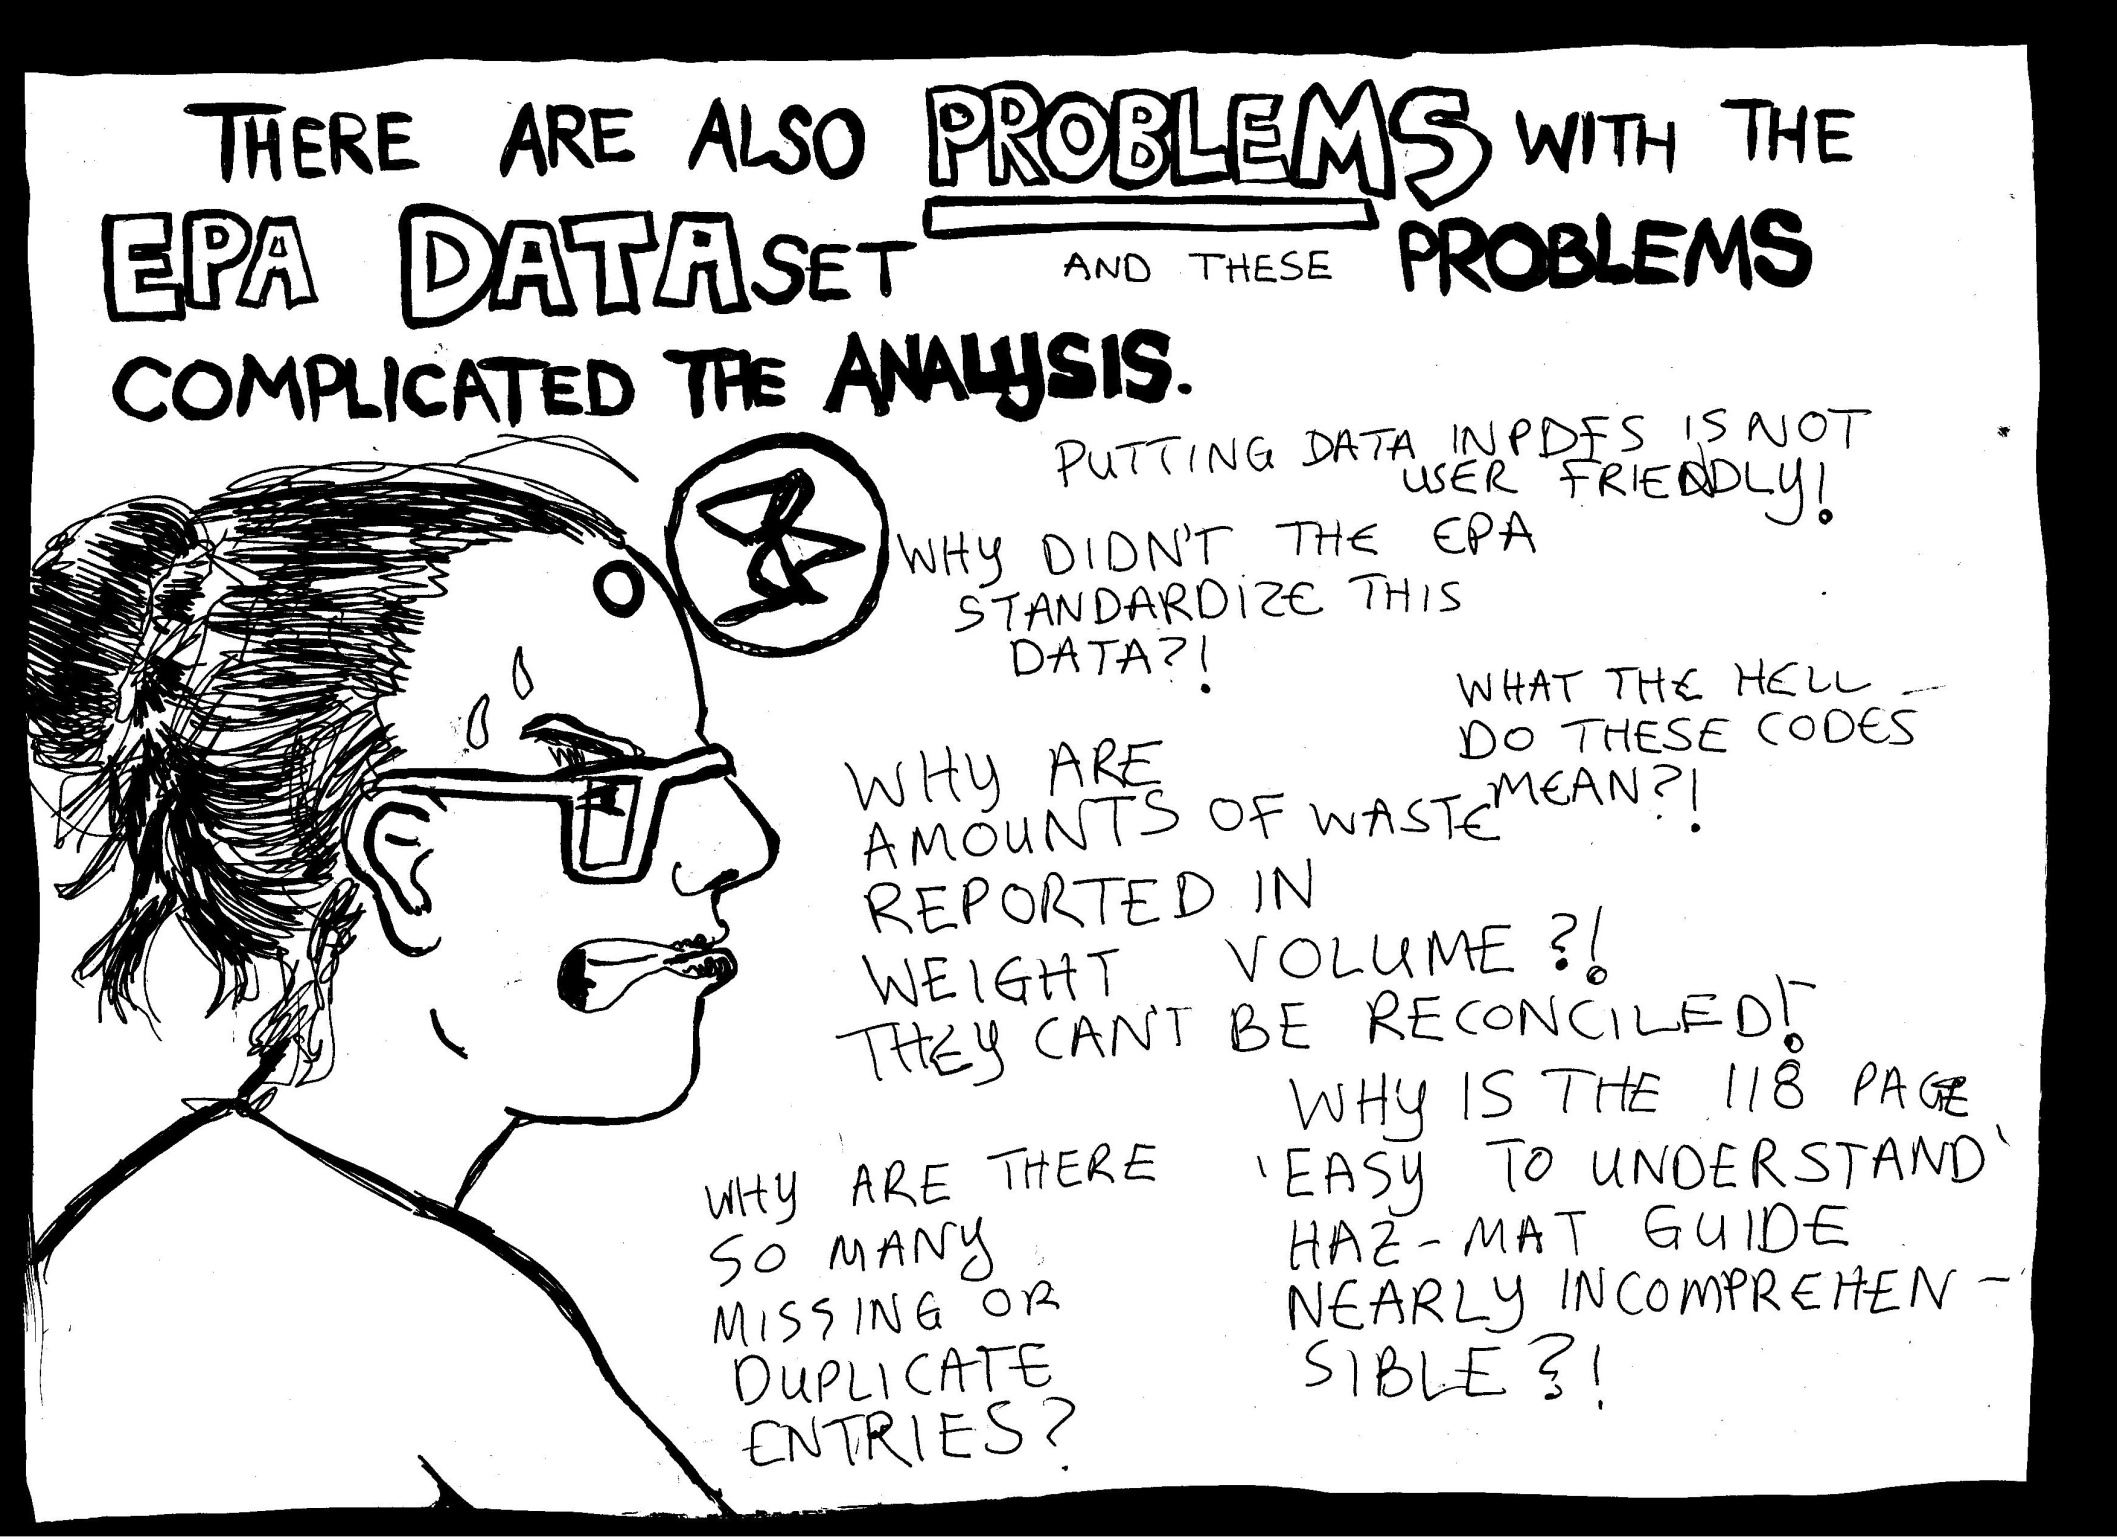 THERE ARE ALSO PROBLEMS WITH THE
EPA DATASET AND THESE PROBLEMS
COMPLICATED THE ANALYSIS.
PUTTING DATA IN PDFS IS NOT
USER FRIENDLY!
WHY DIDN'T THE EPA
STANDARDIZE THIS
DATA?!
WHAT THE HELL
DO THESE CODES
MEAN?!
WHY ARE
AMOUNTS OF WASTE
REPORTED IN
WEIGHT VOLUME?!
THEY CAN'T BE RECONCILED!
WHY IS THE 118 PAGE
'EASY TO UNDERSTAND'
HAZ-MAT GUIDE
NEARLY INCOMPREHEN-
SIBLE?!
WHY ARE THERE
SO MANY
MISSING OR
DUPLICATE
ENTRIES?